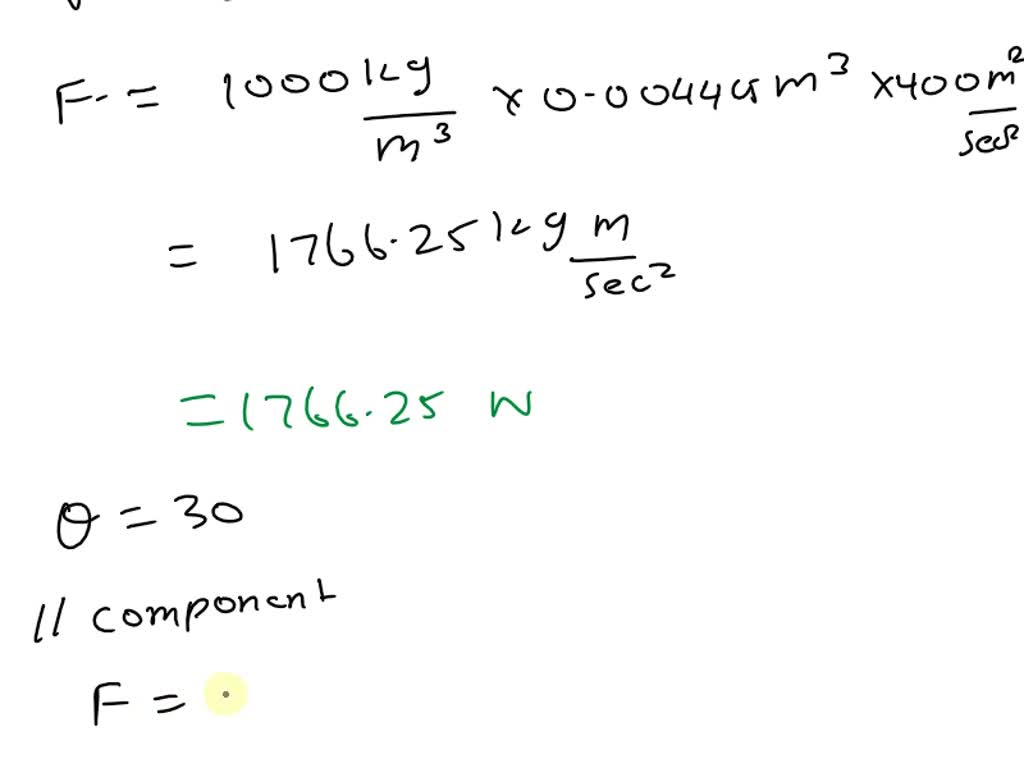 F. = 1000 kg/m³ × 0.00445 m³ × 400 m²/sec²
= 1766.25 kg m/sec²
= 1766.25 N
θ = 30
// component
F =